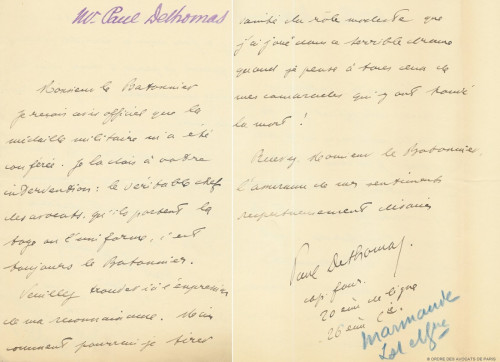 Mr Paul Dethomas
Monsieur le Batonnier
je reçois avis officiel que la
médaille militaire m'a été
conférée. Je la dois à votre
intervention : le véritable chef
des avocats, qu'ils portent la
toge ou l'uniforme, c'est
toujours le Batonnier.
Veuillez trouver ici l'expression
de ma reconnaissance. Mais
comment pourrai-je tirer
vanité du rôle modeste que
j'ai joué dans ce terrible drame
quand je pense à tous ceux de
mes camarades qui y ont trouvé
la mort !
Monsieur le Batonnier,
l'assurance de mes sentiments
respectueusement dévoués
Paul Dethomas
20 ème de ligne
26 ème Cie
Marmande
Lot et Gne
© ORDRE DES AVOCATS DE PARIS